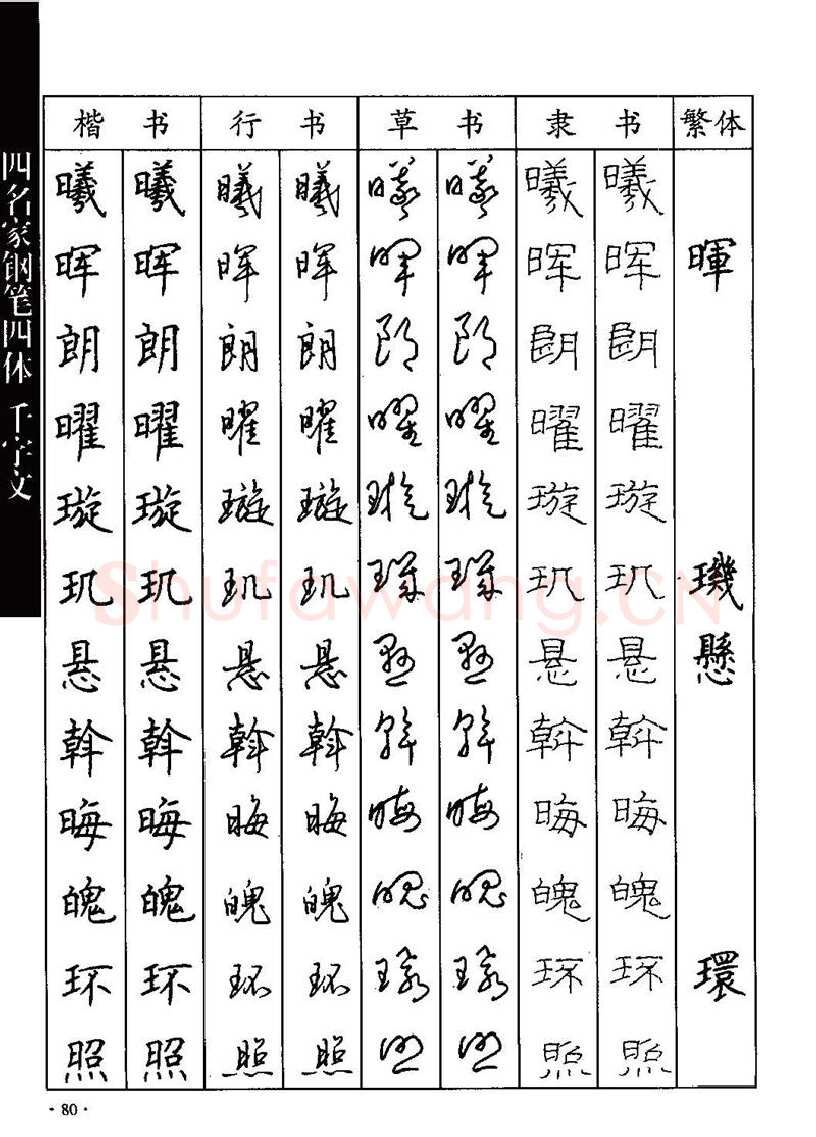 四名家钢笔四体 千字文
楷书 行书 草书 隶书 繁体
曦 曦 曦 曦 曦 曦 曦 曦
晖 晖 晖 晖 晖 晖 晖 晖 暉
朗 朗 朗 朗 朗 朗 朗 朗
曜 曜 曜 曜 曜 曜 曜 曜
璇 璇 璇 璇 璇 璇 璇 璇
玑 玑 玑 玑 玑 玑 玑 玑 璣
悬 悬 悬 悬 悬 悬 悬 悬 懸
斡 斡 斡 斡 斡 斡 斡 斡
晦 晦 晦 晦 晦 晦 晦 晦
魄 魄 魄 魄 魄 魄 魄 魄
环 环 环 环 环 环 环 环 環
照 照 照 照 照 照 照 照
Shufawang.CN
·80·